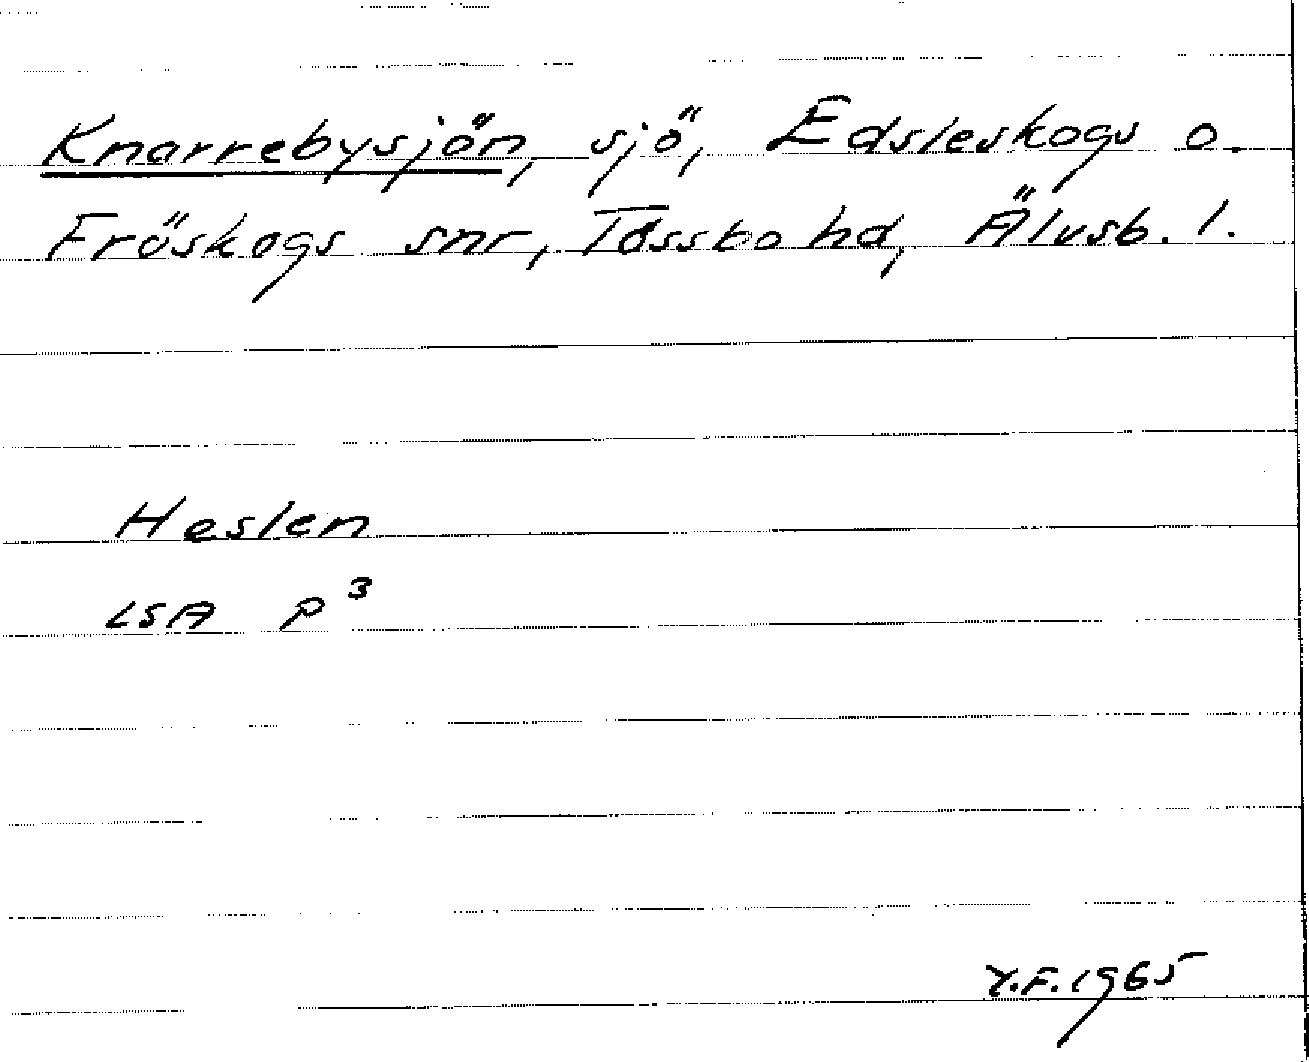 Knarrebysjön, sjö, Edsleskogs o.
Fröskogs snr, Tössbo hd, Älvsb. l.
Heslen
LSA P³
Y.F. 1965